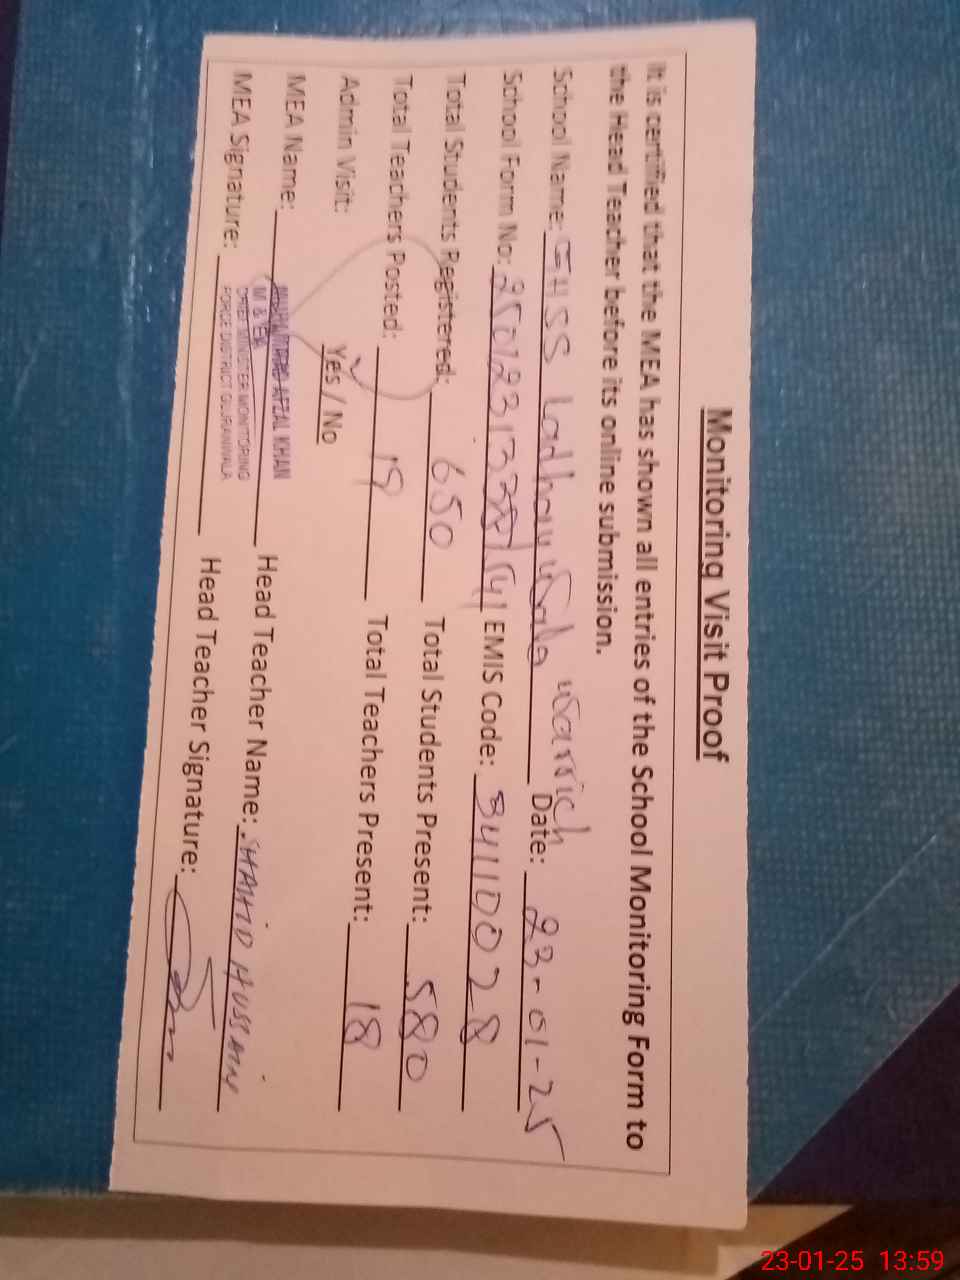 Monitoring Visit Proof
It is certified that the MEA has shown all entries of the School Monitoring Form to
the Head Teacher before its online submission.
School Name: GHSS Ladhay wala warrich Date: 23-01-25
School Form No: EMIS Code: 34110028
Total Students Registered: 650 Total Students Present: 580
Total Teachers Posted: 19 Total Teachers Present: 18
Admin Visit: Yes / No
MEA Name: MUHAMMAD AFZAL KHAN Head Teacher Name: SHAHID HUSSAIN
M & EA
CHIEF MINISTER MONITORING
FORCE DISTRICT GUJRANWALA
MEA Signature: Head Teacher Signature:
23-01-25 13:59